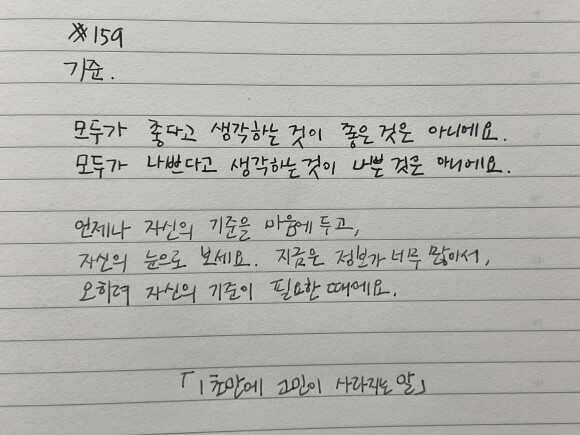 #159
기준.
모두가 좋다고 생각하는 것이 좋은 것은 아니에요.
모두가 나쁘다고 생각하는 것이 나쁜 것은 아니에요.
언제나 자신의 기준을 마음에 두고,
자신의 눈으로 보세요. 지금은 정보가 너무 많아서,
오히려 자신의 기준이 필요한 때에요.
「1초만에 고민이 사라지는 말」